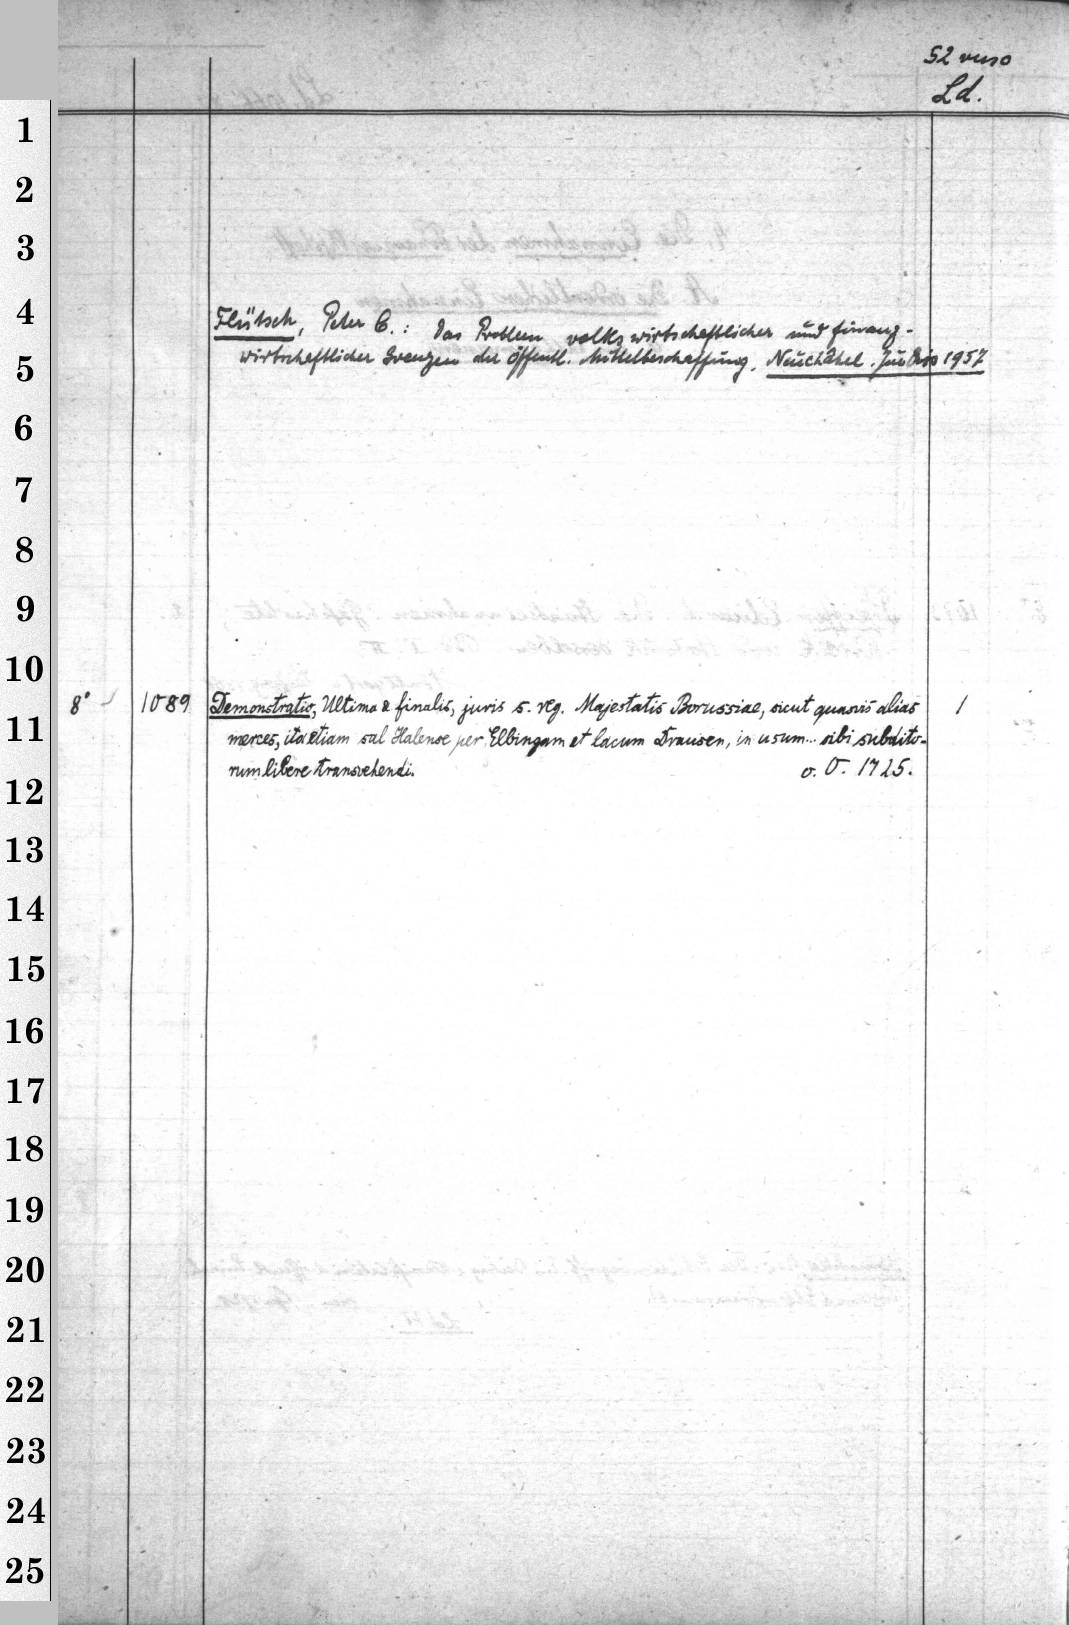 52 verso
Ld.
1
2
3
4
Flütsch, Peter C.: Das Problem volkswirtschaftlicher und finanz-
5
wirtschaftlicher Grenzen der öffentl. Mittelbeschaffung. Neuchâtel. Jur Diss 1957
6
7
8
9
10
8° 1089 Demonstratio, Ultima & finalis, juris s. reg. Majestatis Borussiae, sicut quasvis alias 1
11
merces, ita etiam sal Halense per Elbingam et lacum Drausen, in usum... sibi subdito-
rum libere transvehendi. o. O. 1725.
12
13
14
15
16
17
18
19
20
21
22
23
24
25